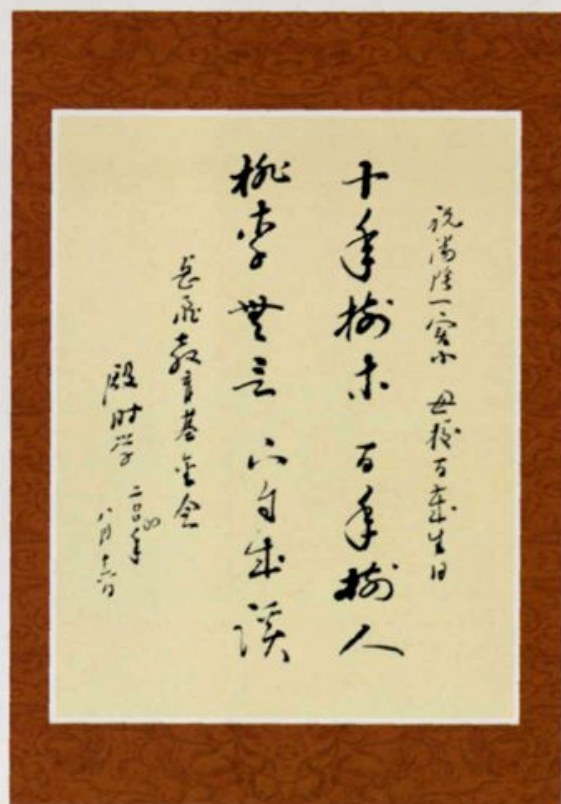 祝汤阴一实小 母校百岁生日
十年树木 百年树人
桃李无言 下自成蹊
岳飞教育基金会
殷时学 二〇〇四年
八月十六日